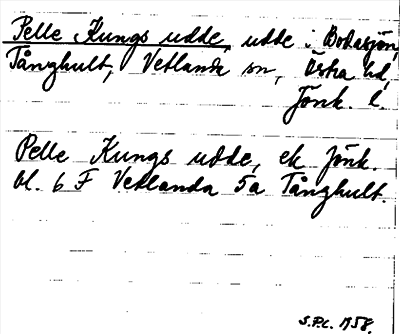 Pelle Kungs udde, udde i Bodasjön,
Tånghult, Vetlanda sn, Östra hd,
Jönk. l.
Pelle Kungs udde, ek Jönk.
bl. 6 F Vetlanda 5a Tånghult.
S.P.L. 1958.